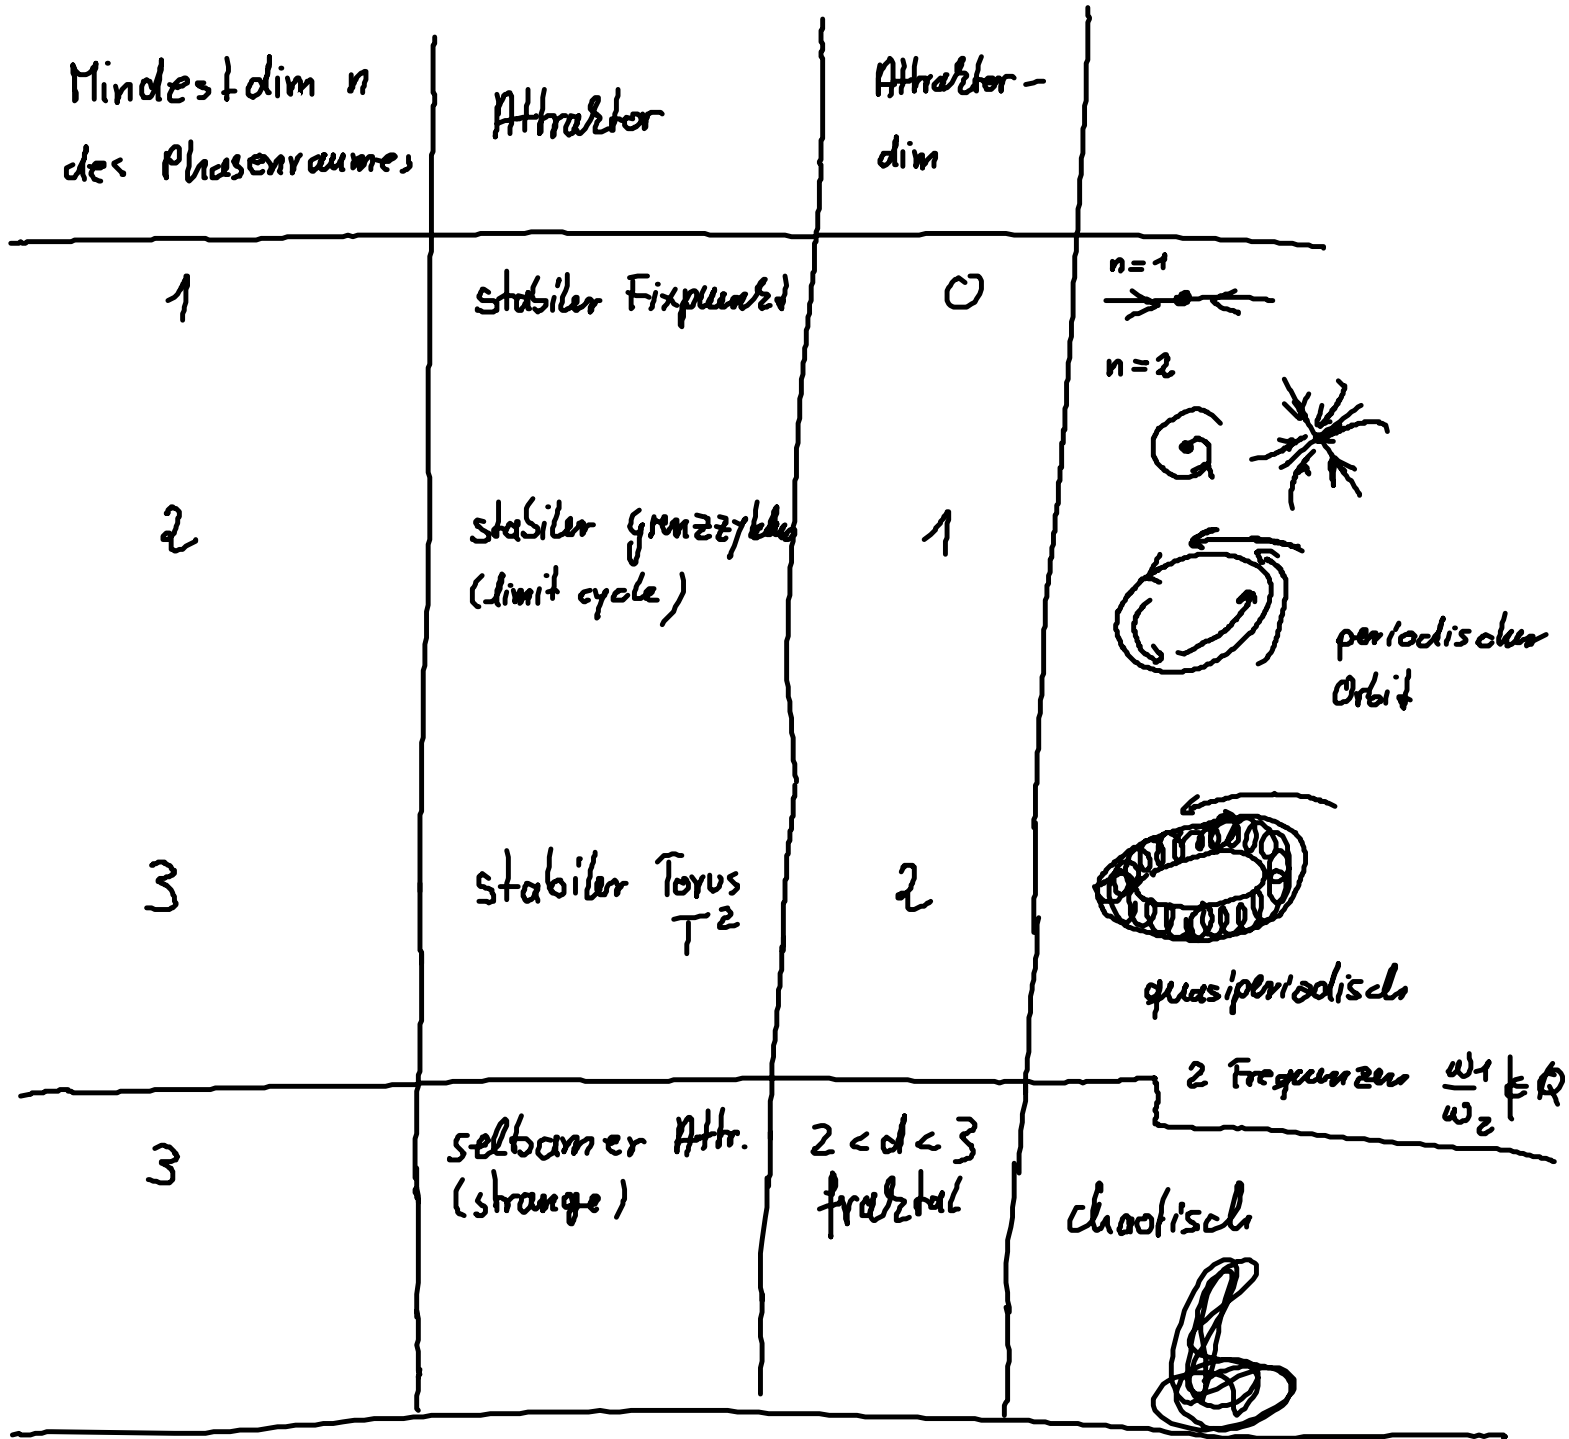 Mindestdim n
des Phasenraumes
Attraktor
Attraktor-
dim
1
stabiler Fixpunkt
0
n=1
n=2
2
stabiler Grenzzyklus
(limit cycle)
1
periodischer
Orbit
3
stabiler Torus
T²
2
quasiperiodisch
2 Frequenzen ω1/ω2 ∉ Q
3
seltsamer Attr.
(strange)
2 < d < 3
fraktal
chaotisch